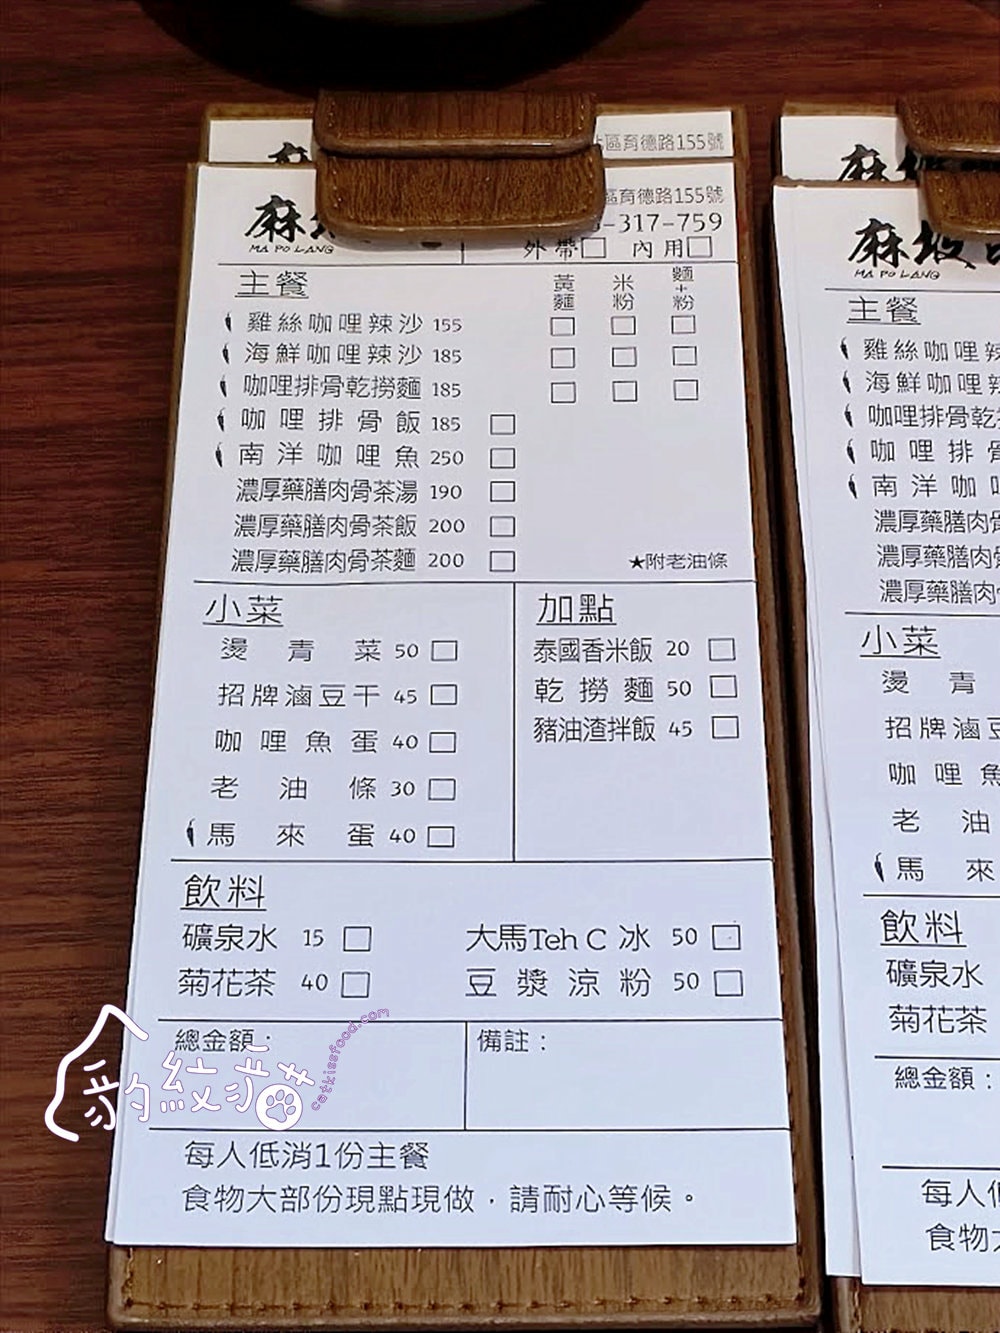 麻
區育德路155號
麻坡
區育德路155號
-317-759
MA PO LANG
外帶□ 內用□
主餐 黃麵 米粉 麵+粉
雞絲咖哩辣沙 155 □ □ □
海鮮咖哩辣沙 185 □ □ □
咖哩排骨乾撈麵 185 □ □ □
咖哩排骨飯 185 □
南洋咖哩魚 250 □
濃厚藥膳肉骨茶湯 190 □
濃厚藥膳肉骨茶飯 200 □
濃厚藥膳肉骨茶麵 200 □ ★附老油條
小菜
燙青菜 50 □
招牌滷豆干 45 □
咖哩魚蛋 40 □
老油條 30 □
馬來蛋 40 □
加點
泰國香米飯 20 □
乾撈麵 50 □
豬油渣拌飯 45 □
飲料
礦泉水 15 □ 大馬Teh C 冰 50 □
菊花茶 40 □ 豆漿涼粉 50 □
總金額： 備註：
豹紋貓 catkissfood.com
每人低消1份主餐
食物大部份現點現做，請耐心等候。
麻坡
麻坡
MA PO LANG
主餐
雞絲咖哩辣
海鮮咖哩辣
咖哩排骨乾
咖哩排骨
南洋咖哩
濃厚藥膳肉骨
濃厚藥膳肉骨
濃厚藥膳肉骨
小菜
燙青
招牌滷豆
咖哩魚
老油
馬來
飲料
礦泉水
菊花茶
總金額：
每人低
食物大